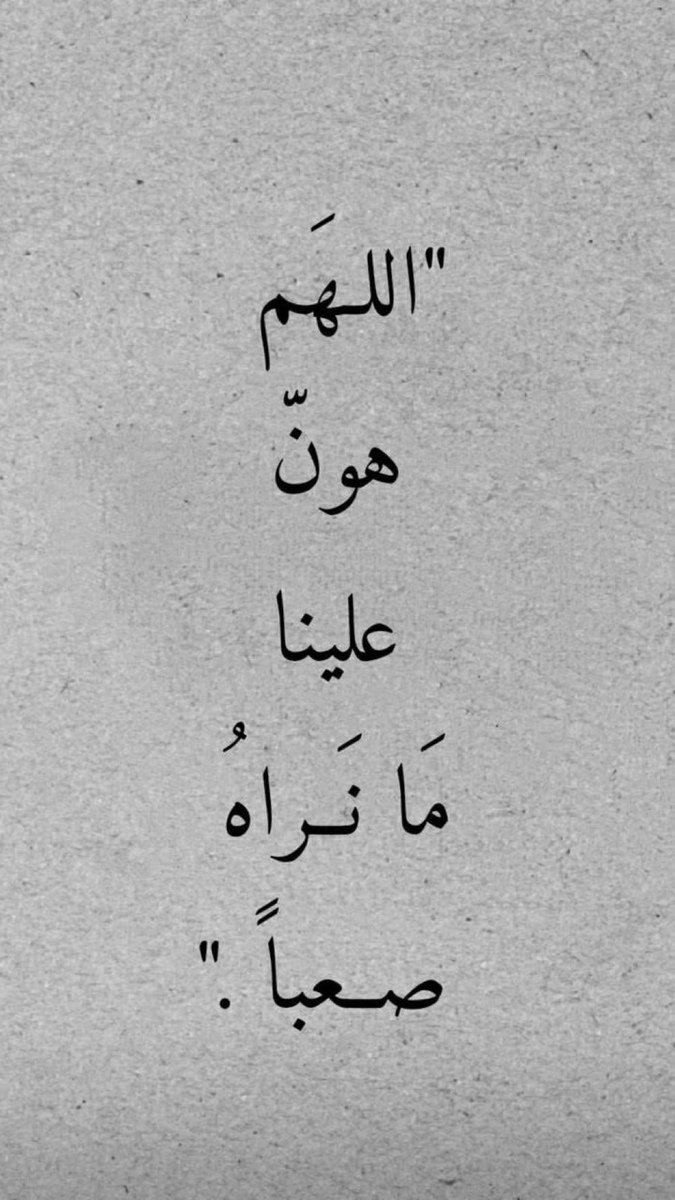 "اللـهَم
هونّ
علينا
مَا نَـراهُ
صـعباً ."